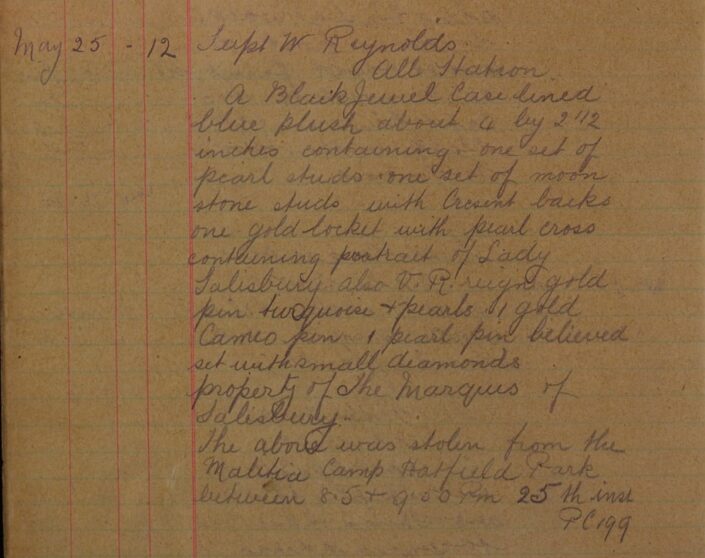 May 25 - 12 Supt W Reynolds.
All Station.
A Black Jewel Case lined
blue plush about 4 by 2 1/2
inches containing - one set of
pearl studs - one set of moon
stone studs with Cresent backs
one gold locket with pearl cross
containing portrait of Lady
Salisbury also V.R. reign gold
pin turquoise + pearls 1 gold
Cameo pin 1 pearl pin believed
set with small diamonds
property of The Marquis of
Salisbury.
The above was stolen from the
Malitia Camp Hatfield Park
between 8.5 + 9.50 PM 25th inst
PC 199